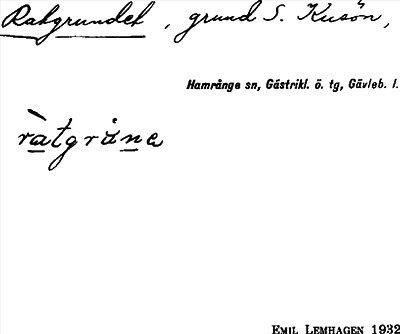 Ratgrundet, grund S. Kusön,
Hamrånge sn, Gästrikl. ö. tg, Gävleb. l.
ràtgråne
EMIL LEMHAGEN 1932